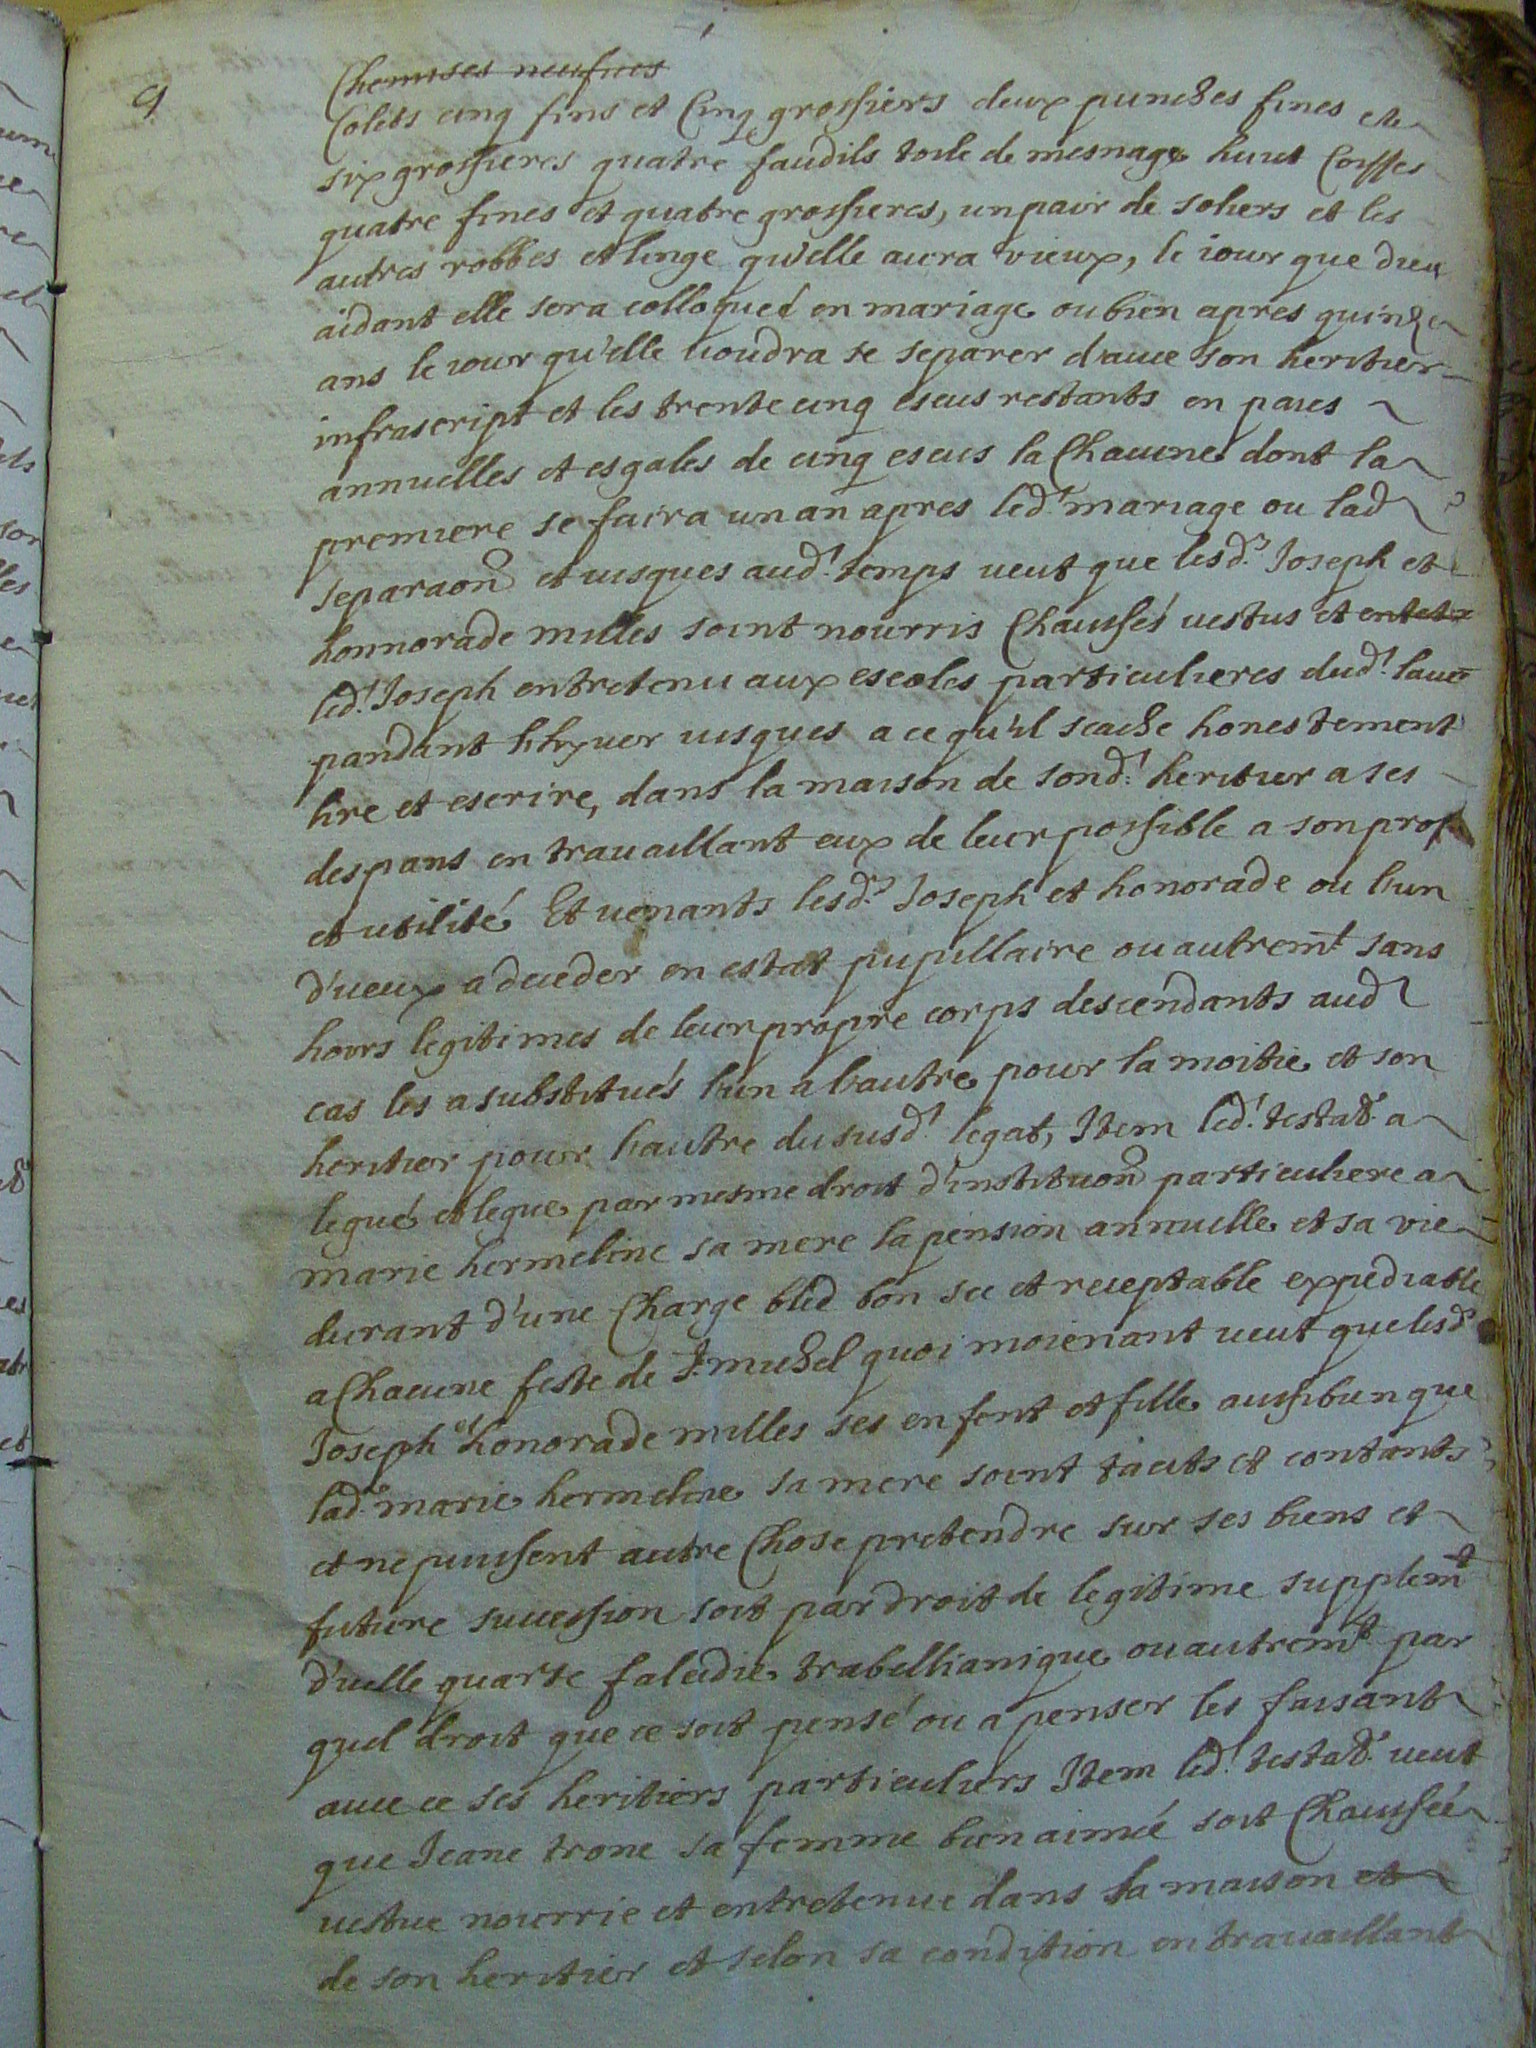 9
Chemises neufves
Colets cinq fins et Cinq grossiers deux punches fines et
six grossieres quatre faudils toile de mesnage huict Coiffes
quatre fines et quatre grossieres, un pair de soliers et les
autres robbes et linge qu'elle aura vieux, le iour que dieu
aidant elle sera colloquee en mariage ou bien apres quinze
ans le iour qu'elle voudra se separer d'avec son heritier
infrascript et les trente cinq escus restants en paies
annuelles et esgales de cinq escus la Chacune dont la
premiere se faira un an apres led.t mariage ou lad
separaõn et iusques aud.t temps veut que lesd.s Joseph et
honnorade milles soint nourris Chaussés vestus et entet
led.t Joseph entretenu aux escoles particulieres dud.t lauc
pandant l'hyver iusques a ce qu'il scache honestement
lire et escrire, dans la maison de sond.t heritier a ses
despans en travaillant eux de leur possible a son prof
et utilité Et venants lesd.s Joseph et honorade ou l'un
d'iceux a deceder en estat pupillaire ou autrem.t sans
hoirs legitimes de leur propre corps descendants aud
cas les a substitués l'un a l'autre pour la moitie et son
heritier pour l'autre du susd.t legat, Item led.t testat.r a
legué et legue par mesme droit d'instituõn particuliere a
marie hermeline sa mere la pension annuelle et sa vie
durant d'une Charge bled bon sec et receptable expediable
a Chacune feste de S.t michel quoi moienant veut que lesd.s
Joseph et honorade milles ses enfent et fille aussi bien que
lad.e marie hermeline sa mere soint tacits et contants
et ne puissent autre Chose pretendre sur ses biens et
future succession soit par droit de legitime supplem.t
d'icelle quarte falcidie trabellianique ou autrem.t par
quel droit que ce soit pensé ou a penser les faisant
avec ce ses heritiers particuliers Item led.t testat.r veut
que Jeane trone sa femme bien aimée soit Chaussée
vestue nourrie et entretenue dans la maison et
de son heritier et selon sa condition en travaillant